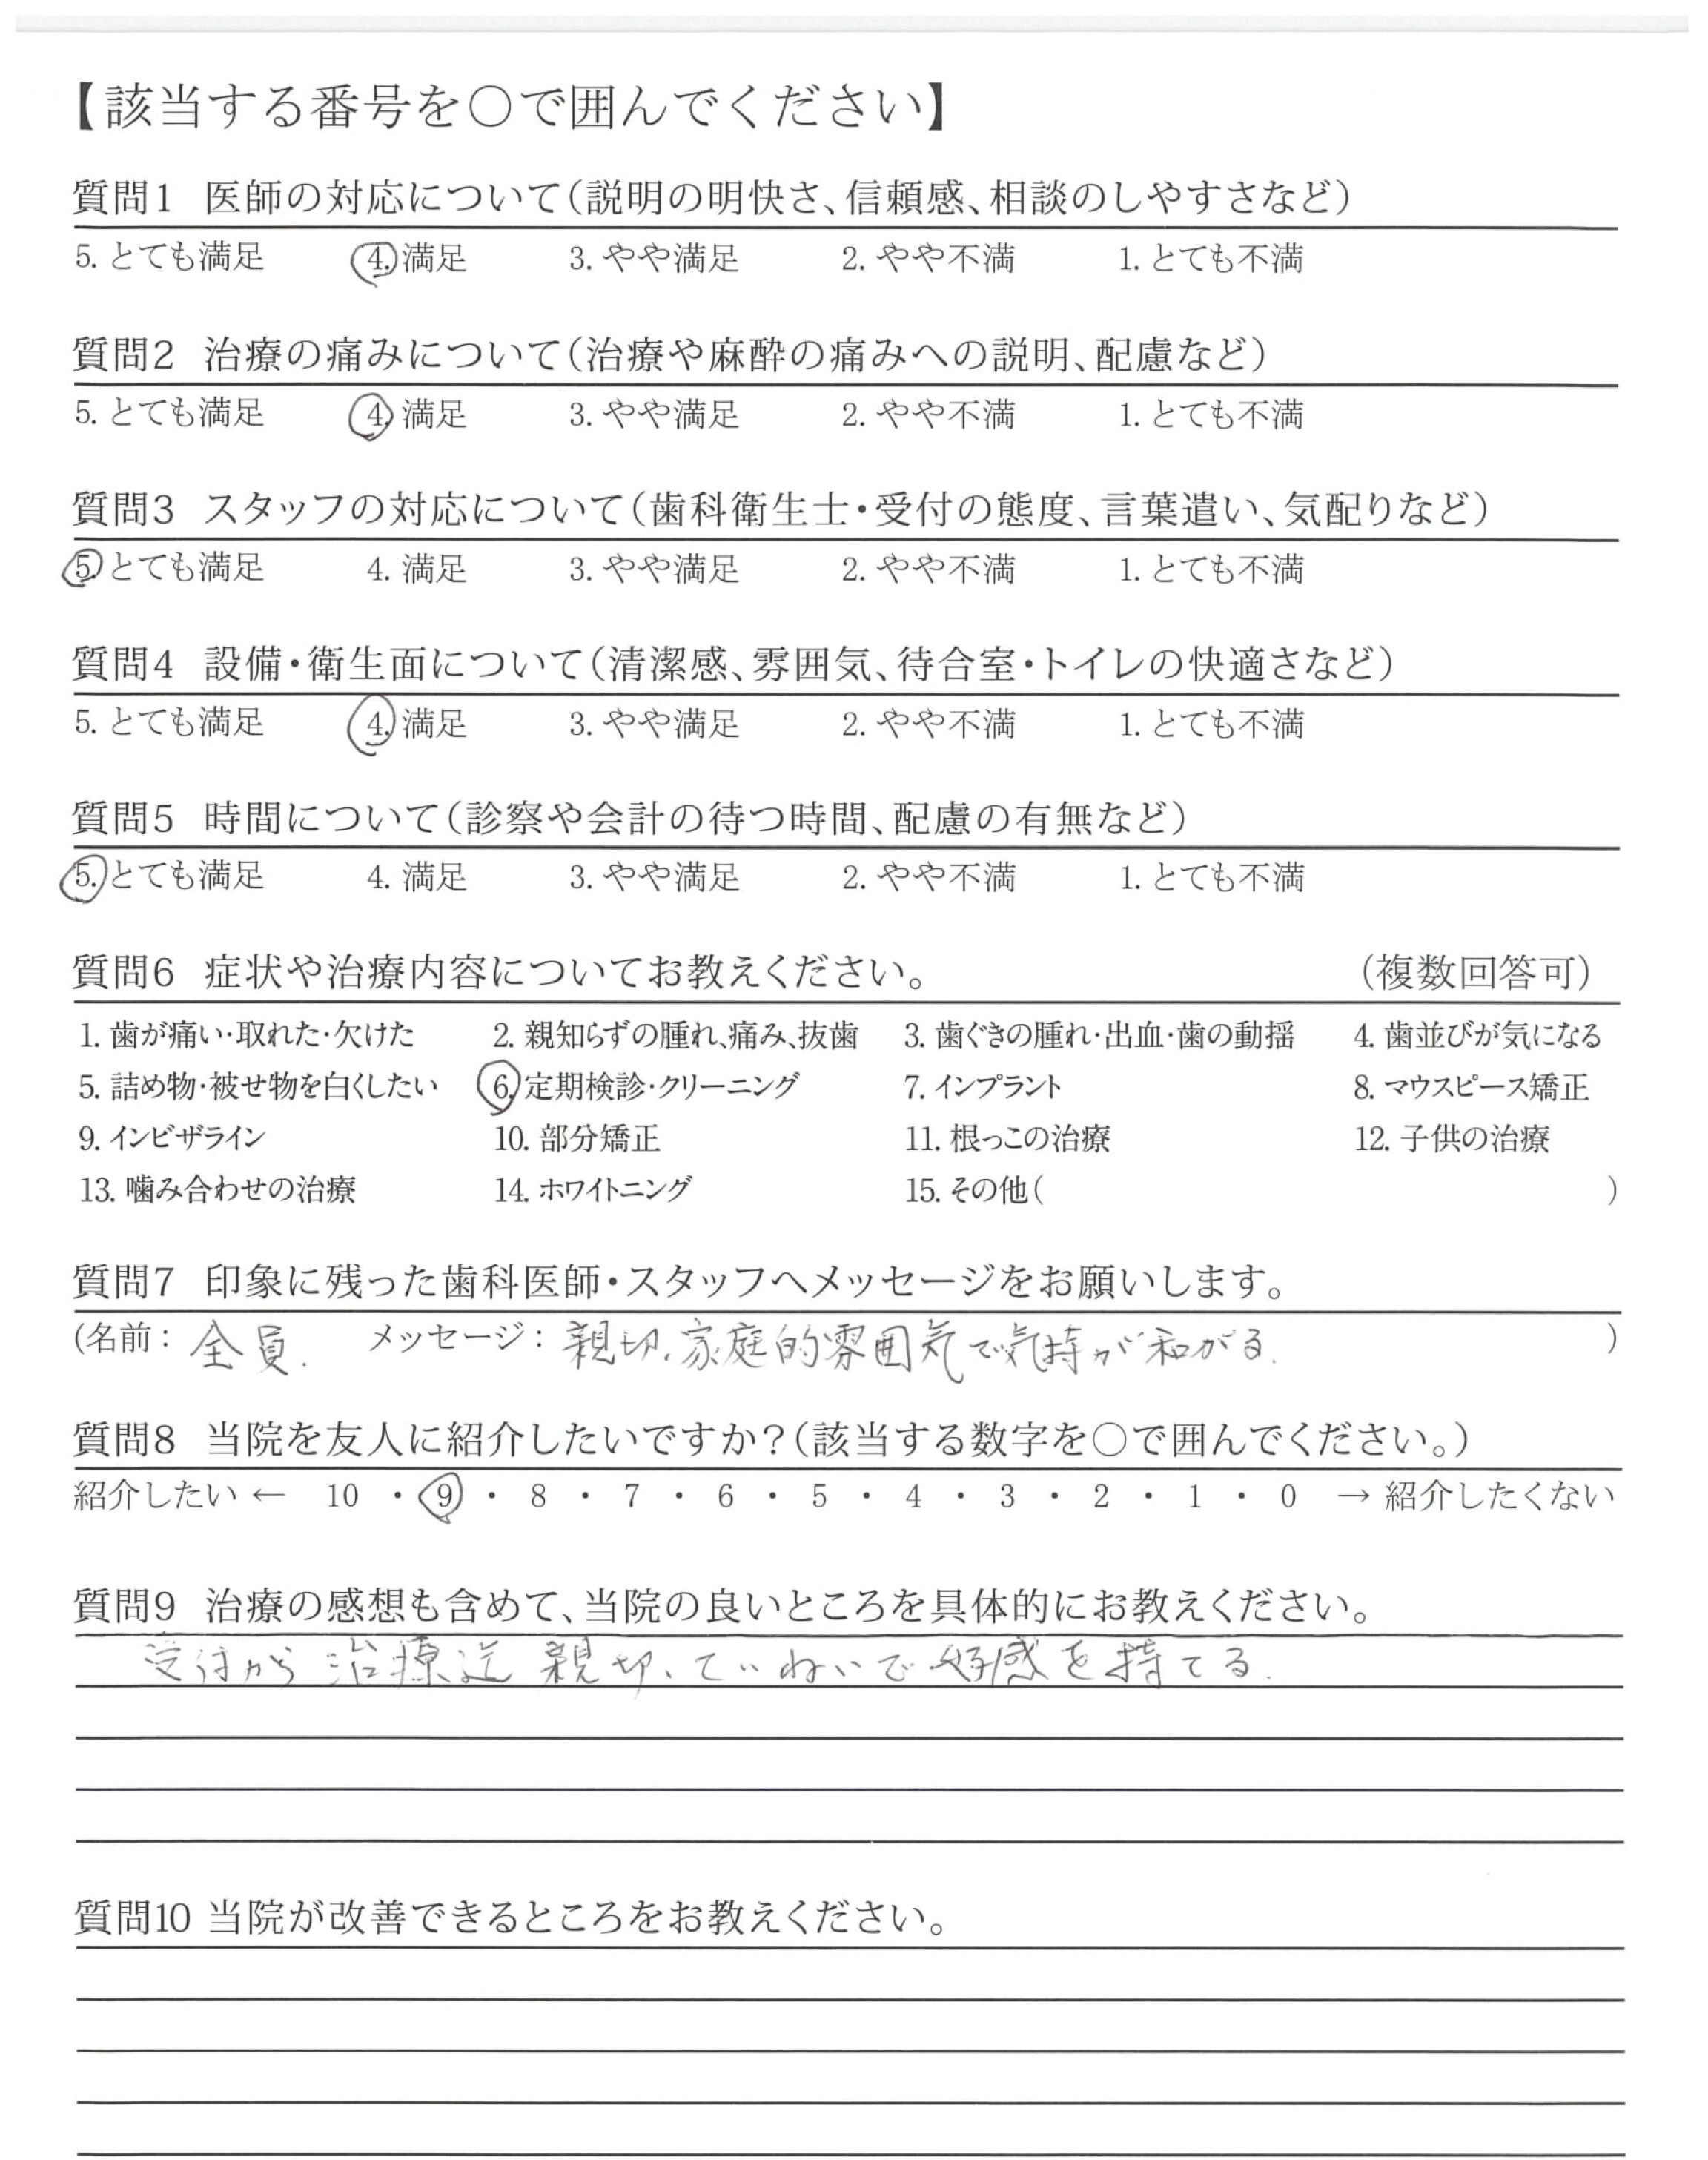 【該当する番号を○で囲んでください】
質問1 医師の対応について(説明の明快さ、信頼感、相談のしやすさなど)
5. とても満足 4. 満足 3. やや満足 2. やや不満 1. とても不満
質問2 治療の痛みについて(治療や麻酔の痛みへの説明、配慮など)
5. とても満足 4. 満足 3. やや満足 2. やや不満 1. とても不満
質問3 スタッフの対応について(歯科衛生士・受付の態度、言葉遣い、気配りなど)
5. とても満足 4. 満足 3. やや満足 2. やや不満 1. とても不満
質問4 設備・衛生面について(清潔感、雰囲気、待合室・トイレの快適さなど)
5. とても満足 4. 満足 3. やや満足 2. やや不満 1. とても不満
質問5 時間について(診察や会計の待つ時間、配慮の有無など)
5. とても満足 4. 満足 3. やや満足 2. やや不満 1. とても不満
質問6 症状や治療内容についてお教えください。 (複数回答可)
1. 歯が痛い・取れた・欠けた 2. 親知らずの腫れ、痛み、抜歯 3. 歯ぐきの腫れ・出血・歯の動揺 4. 歯並びが気になる
5. 詰め物・被せ物を白くしたい 6. 定期検診・クリーニング 7. インプラント 8. マウスピース矯正
9. インビザライン 10. 部分矯正 11. 根っこの治療 12. 子供の治療
13. 噛み合わせの治療 14. ホワイトニング 15. その他( )
質問7 印象に残った歯科医師・スタッフへメッセージをお願いします。
(名前: 全員. メッセージ: 親切、家庭的雰囲気で気持が和がる. )
質問8 当院を友人に紹介したいですか?(該当する数字を○で囲んでください。)
紹介したい ← 10 ・ 9 ・ 8 ・ 7 ・ 6 ・ 5 ・ 4 ・ 3 ・ 2 ・ 1 ・ 0 → 紹介したくない
質問9 治療の感想も含めて、当院の良いところを具体的にお教えください。
受付から治療迄 親切、ていねいで好感を持てる.
質問10 当院が改善できるところをお教えください。